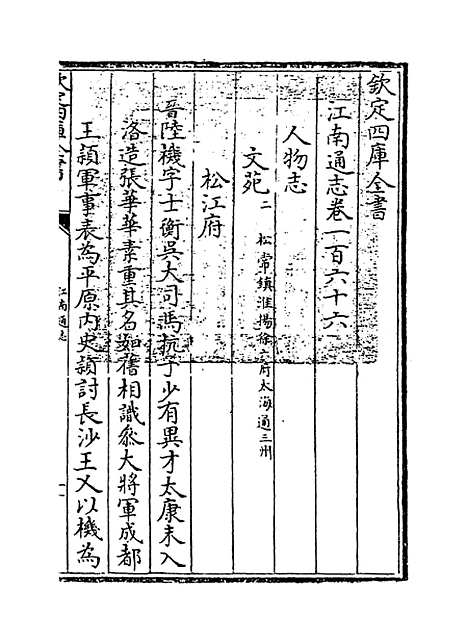 欽定四庫全書
江南通志卷一百六十六
人物志
文苑二 松常鎮淮揚徐六府太海通三州
松江府
晉陸機字士衡吳大司馬抗子少有異才太康末入
洛造張華華素重其名如舊相識叅大將軍成都
王頴軍事表為平原內史頴討長沙王乂以機為
欽定四庫全書
江南通志
一